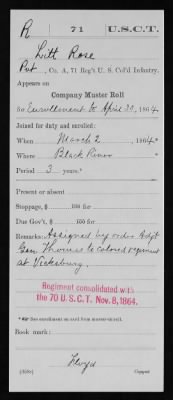 R 71 U.S.C.T.
Litt Rose
Pvt, Co. A, 71 Reg't U. S. Col'd Infantry.
Appears on
Company Muster Roll
for Enrollment to April 30, 1864
Joined for duty and enrolled:
When March 2, 1864*
Where Black River
Period 3 years.*
Present or absent
Stoppage, $ 100 for
Due Gov't, $ 100 for
Remarks: Assigned by order Adjt
Gen Thomas to colored regiment
at Vicksburg.
Regiment consolidated with
the 70 U. S. C. T. Nov. 8, 1864.
*See enrollment on card from muster-in roll.
Book mark:
Floyd
(358c) Copyist.